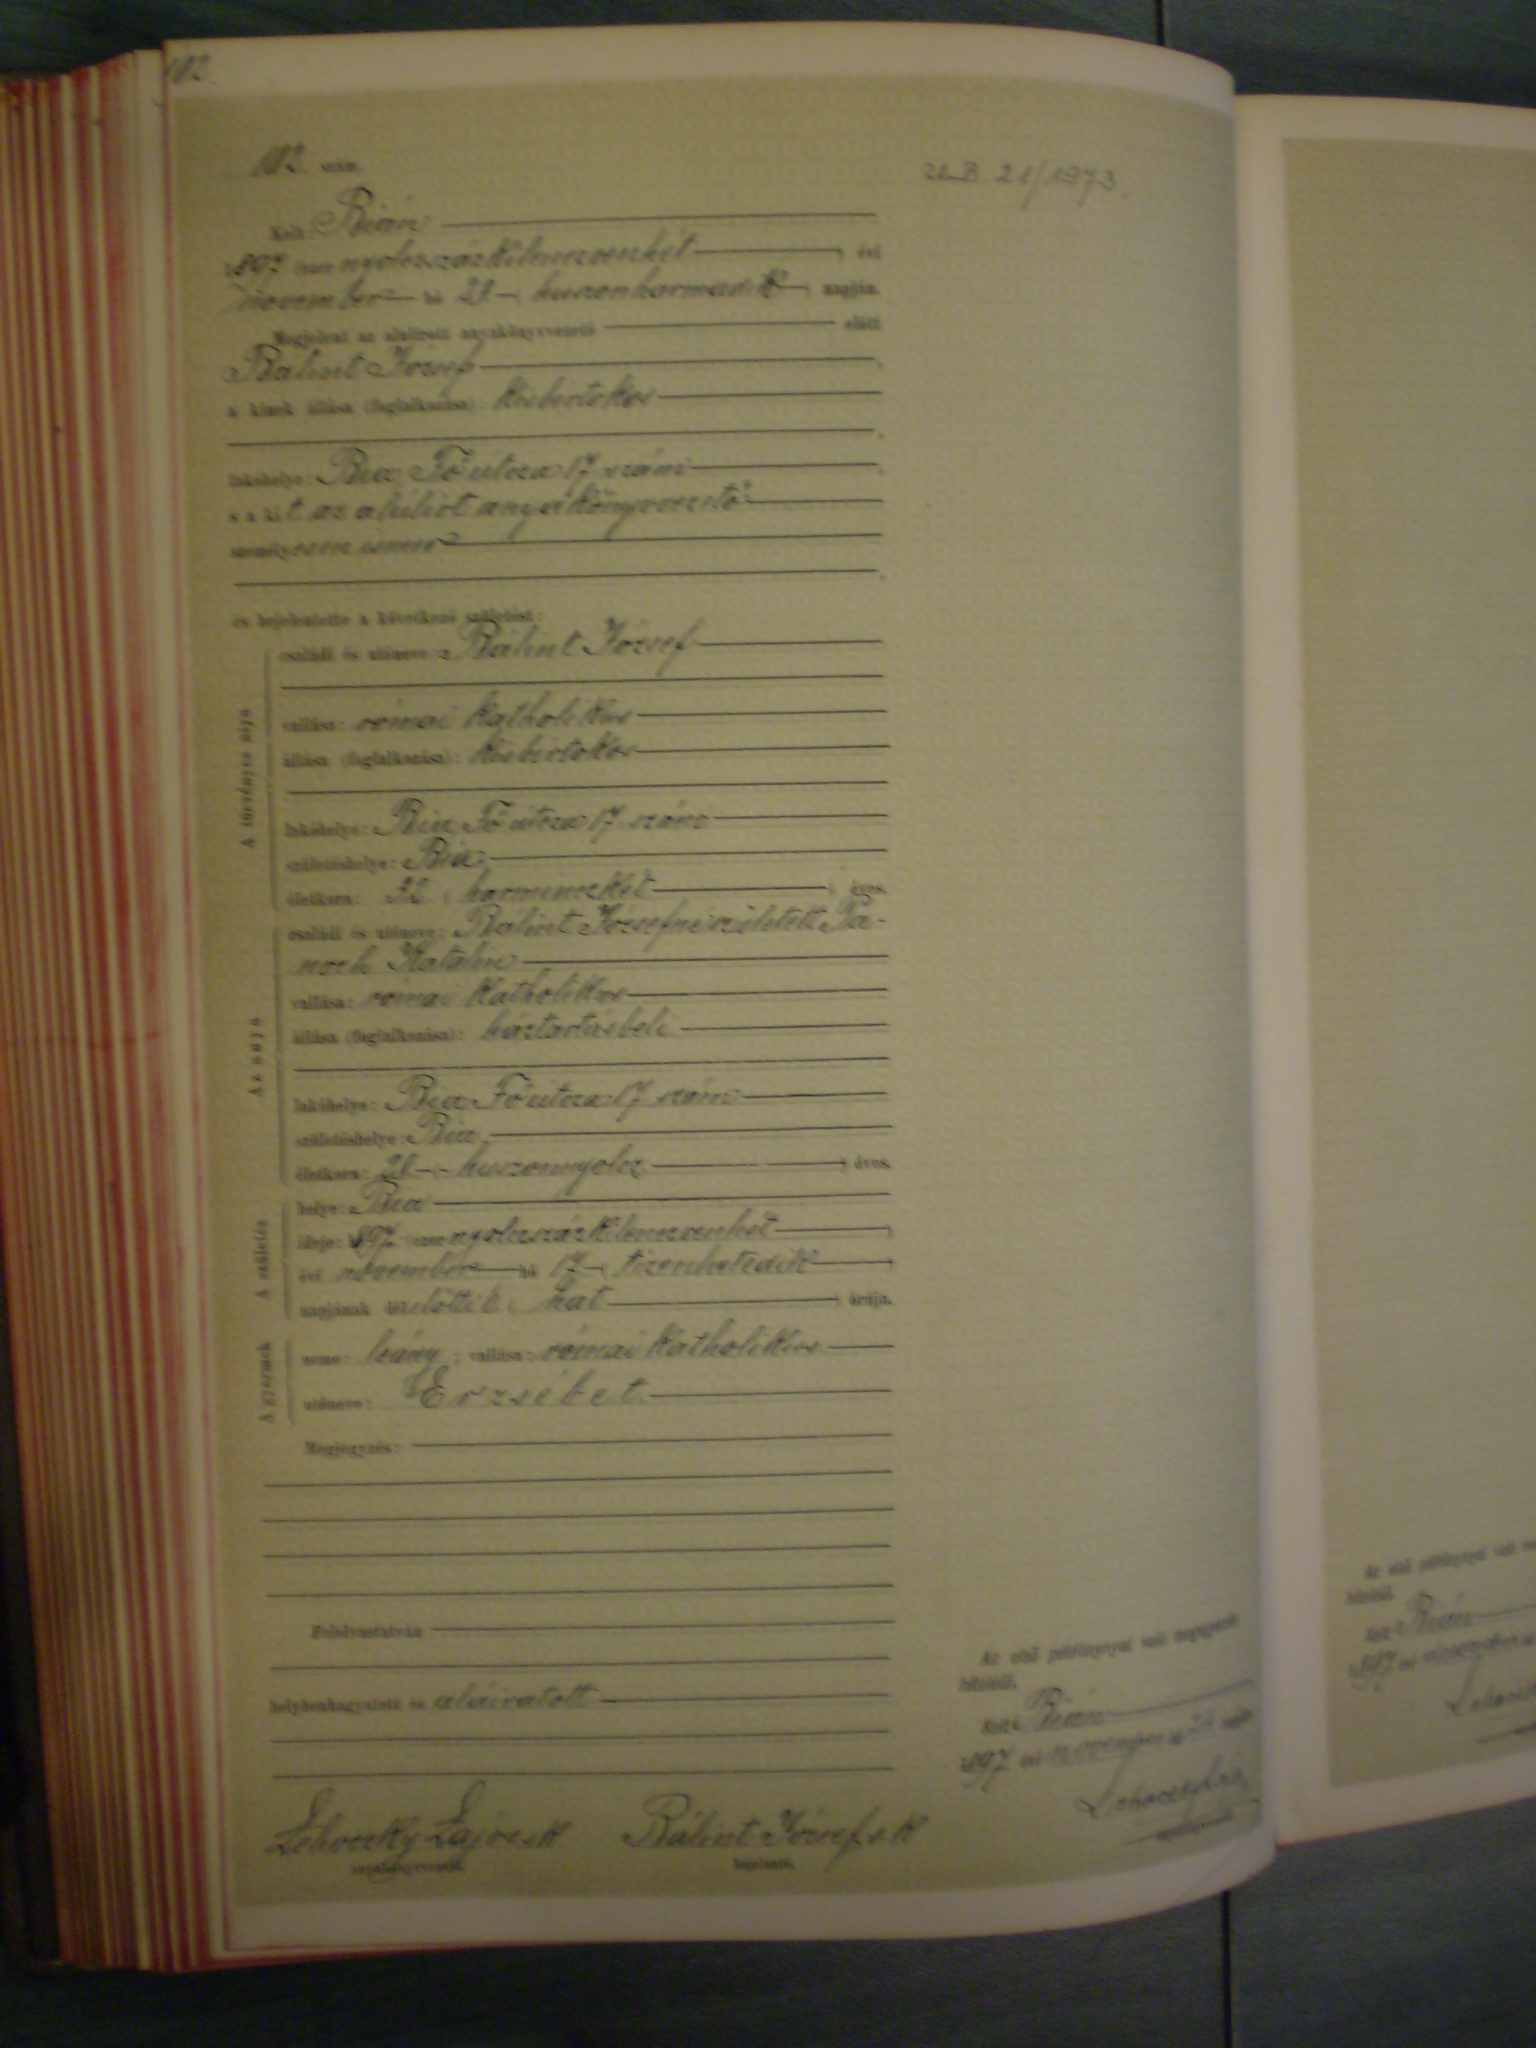 102.
102. szám.
U.B. 21/1973.
Kelt Bián
1897 (ezer nyolczszázkilenczvenhét) évi
november hó 23 (huszonharmadik) napján.
Megjelent az alulírott anyakönyvvezető előtt
Bálint József
a kinek állása (foglalkozása): kisbirtokos
lakóhelye: Bia, Fő útcza 17 szám
s a kit az alulirt anyakönyvvezető
személyesen ismer
és bejelentette a következő születést:
A törvényes atya
családi és utóneve: Bálint József
vallása: római katholikus
állása (foglalkozása): kisbirtokos
lakóhelye: Bia, Fő útcza 17. szám
születéshelye: Bia
életkora: 32 (harminczkét) éves.
Az anya
családi és utóneve: Bálint Józsefné született
Katalin
vallása: római katholikus
állása (foglalkozása): háztartásbeli
lakóhelye: Bia Fő útcza 17 szám
születéshelye: Bia
életkora: 28 (huszonnyolcz) éves.
A születés
helye: Bia
ideje: 1897 (ezer nyolczszázkilenczvenhét)
évi november hó 17 (tizenhetedik)
napjának délelőtti 6 (hat) órája.
A gyermek
neme: leány; vallása: római katholikus
utóneve: Erzsébet.
Megjegyzés:
Felolvastatván
helybenhagyatott és aláiratott
Lehoczky Lajos sk
anyakönyvvezető.
Bálint József s. k
bejelentő.
Az első példánynyal való megegyezését
hitelesíti.
Kelt Bián
1897 évi november hó napján
anyakönyvvezető.
Az első példánynyal való
hitelesíti.
Kelt Bián
1897 évi november